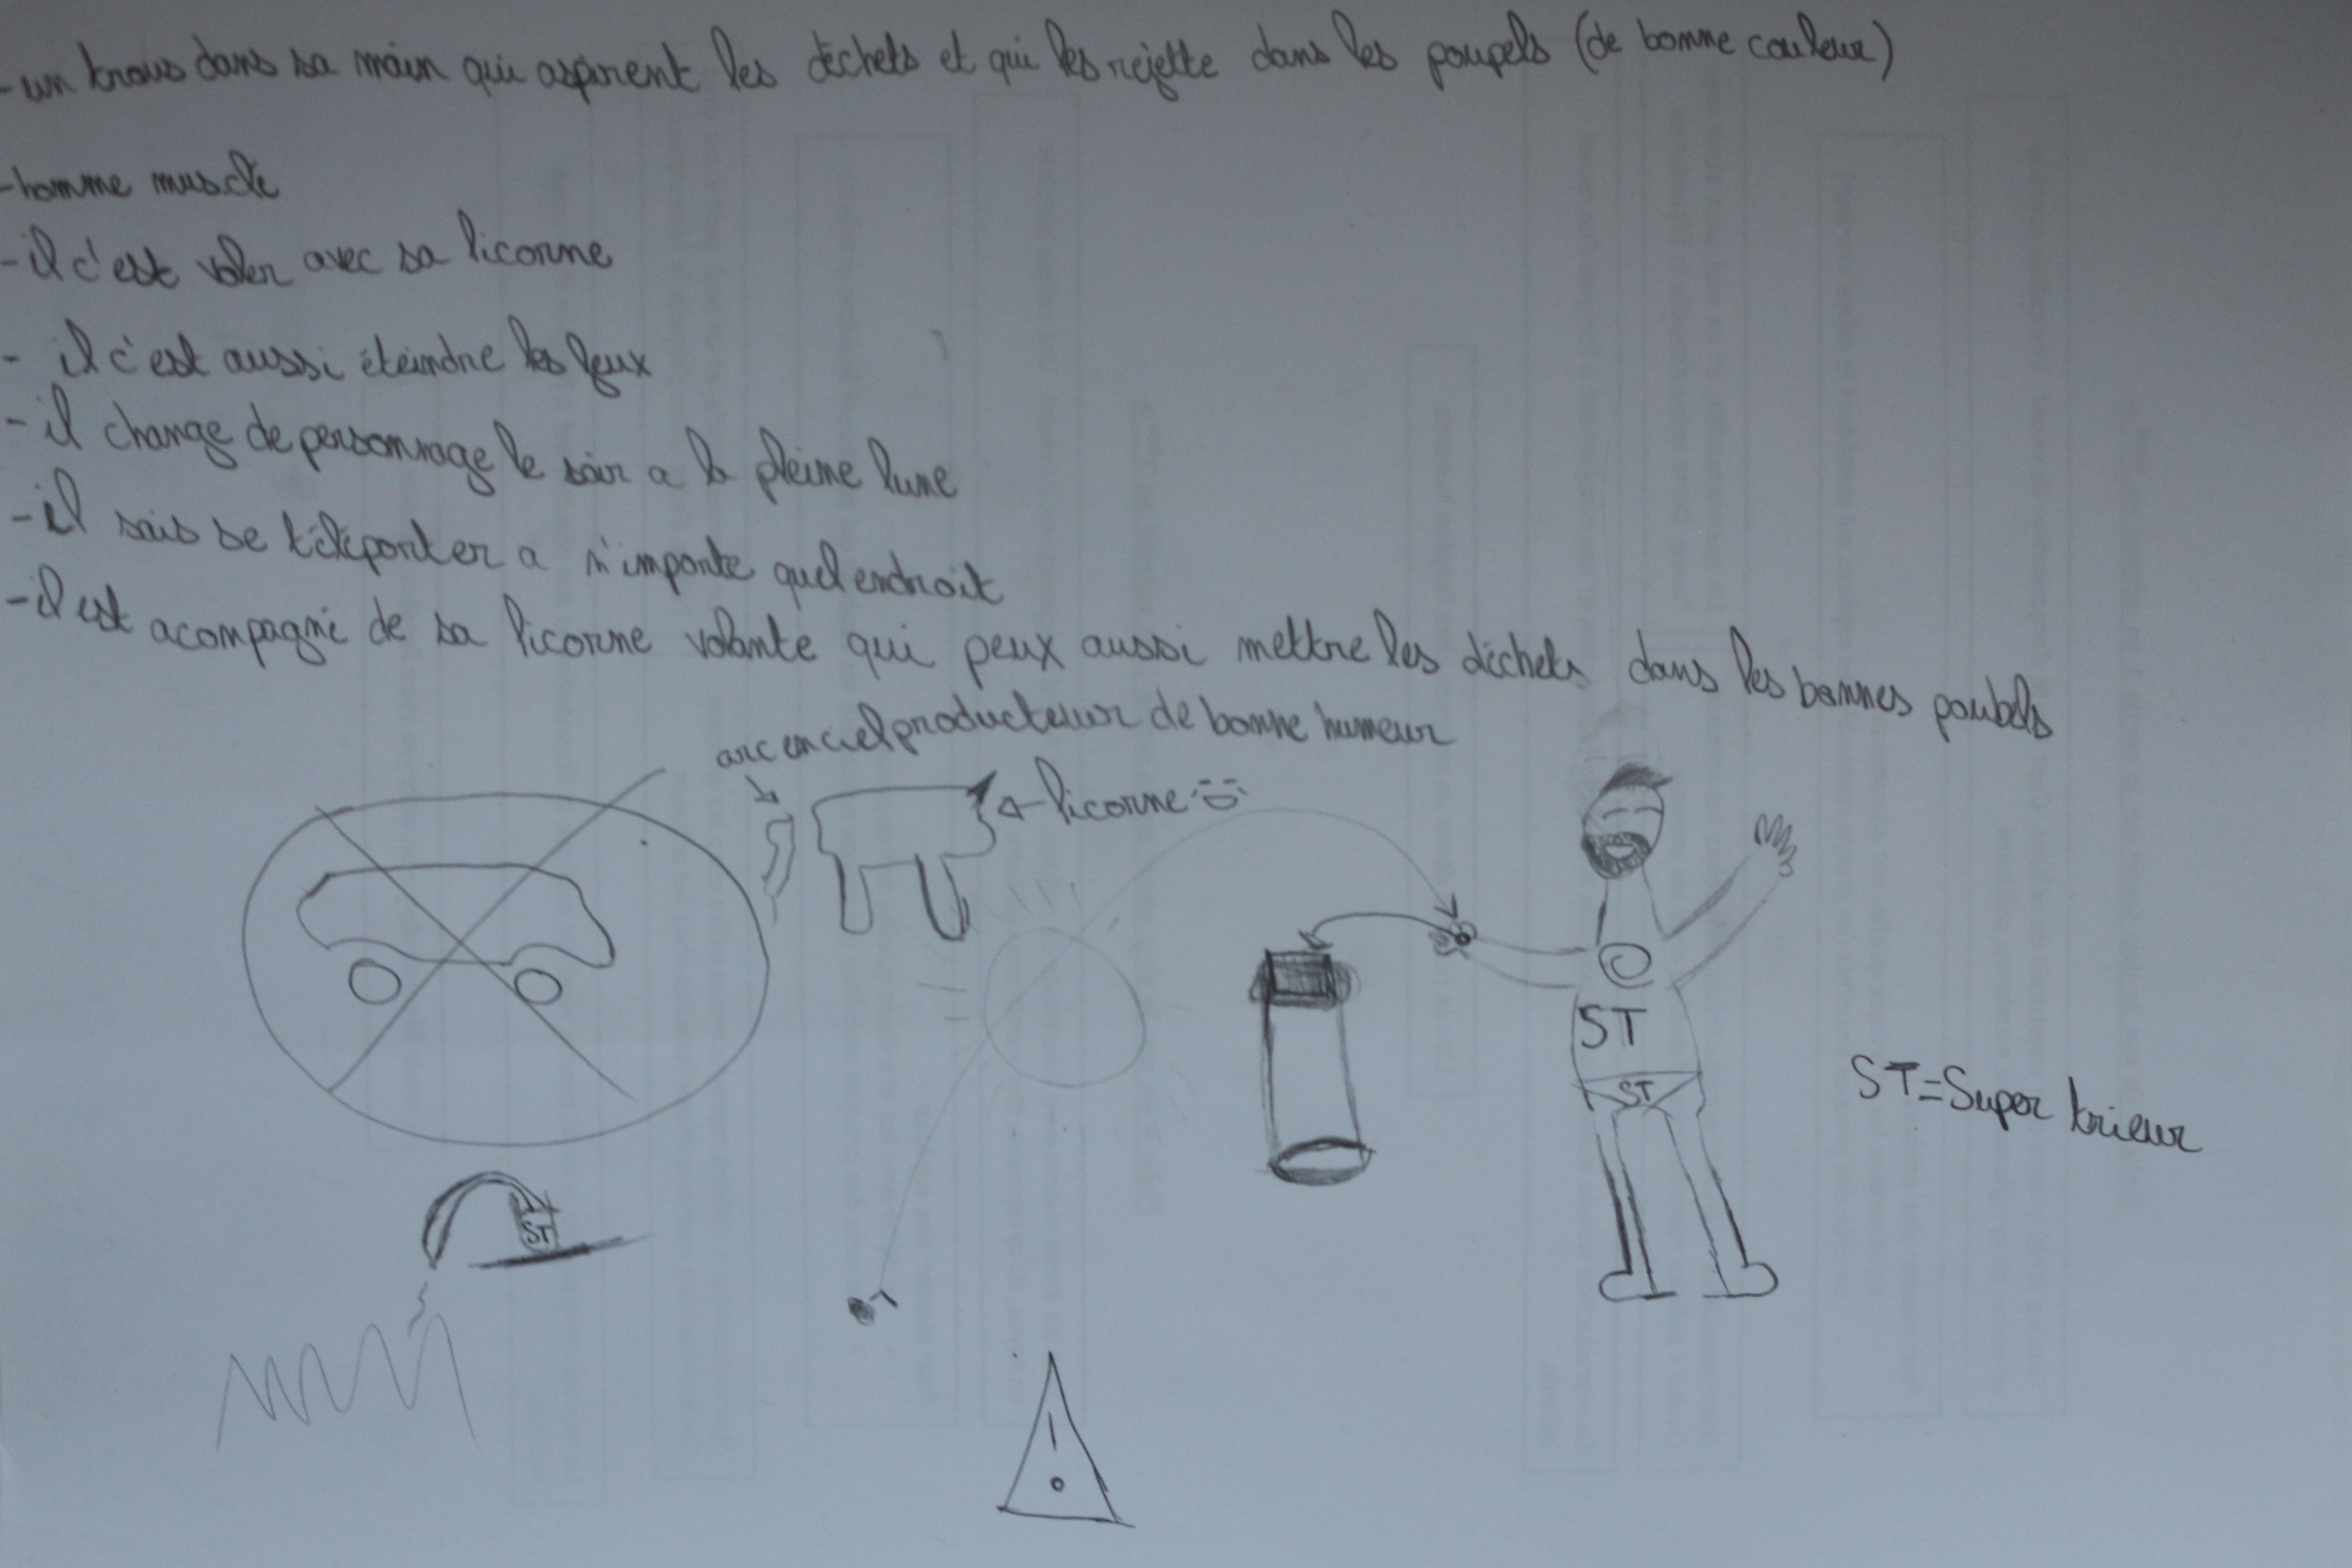 - un trous dans sa main qui aspirent les déchets et qui les rejette dans les poupels (de bonne couleur)
- homme musclé
- il c'est voler avec sa licorne
- il c'est aussi éteindre les feux
- il change de personnage le soir a la pleine lune
- il sais se téléporter a n'importe quel endroit
- il est acompagné de sa licorne volante qui peux aussi mettre les déchets dans les bonnes poubels
arc en ciel producteur de bonne humeur
licorne
ST
ST
ST = Super trieur
ST